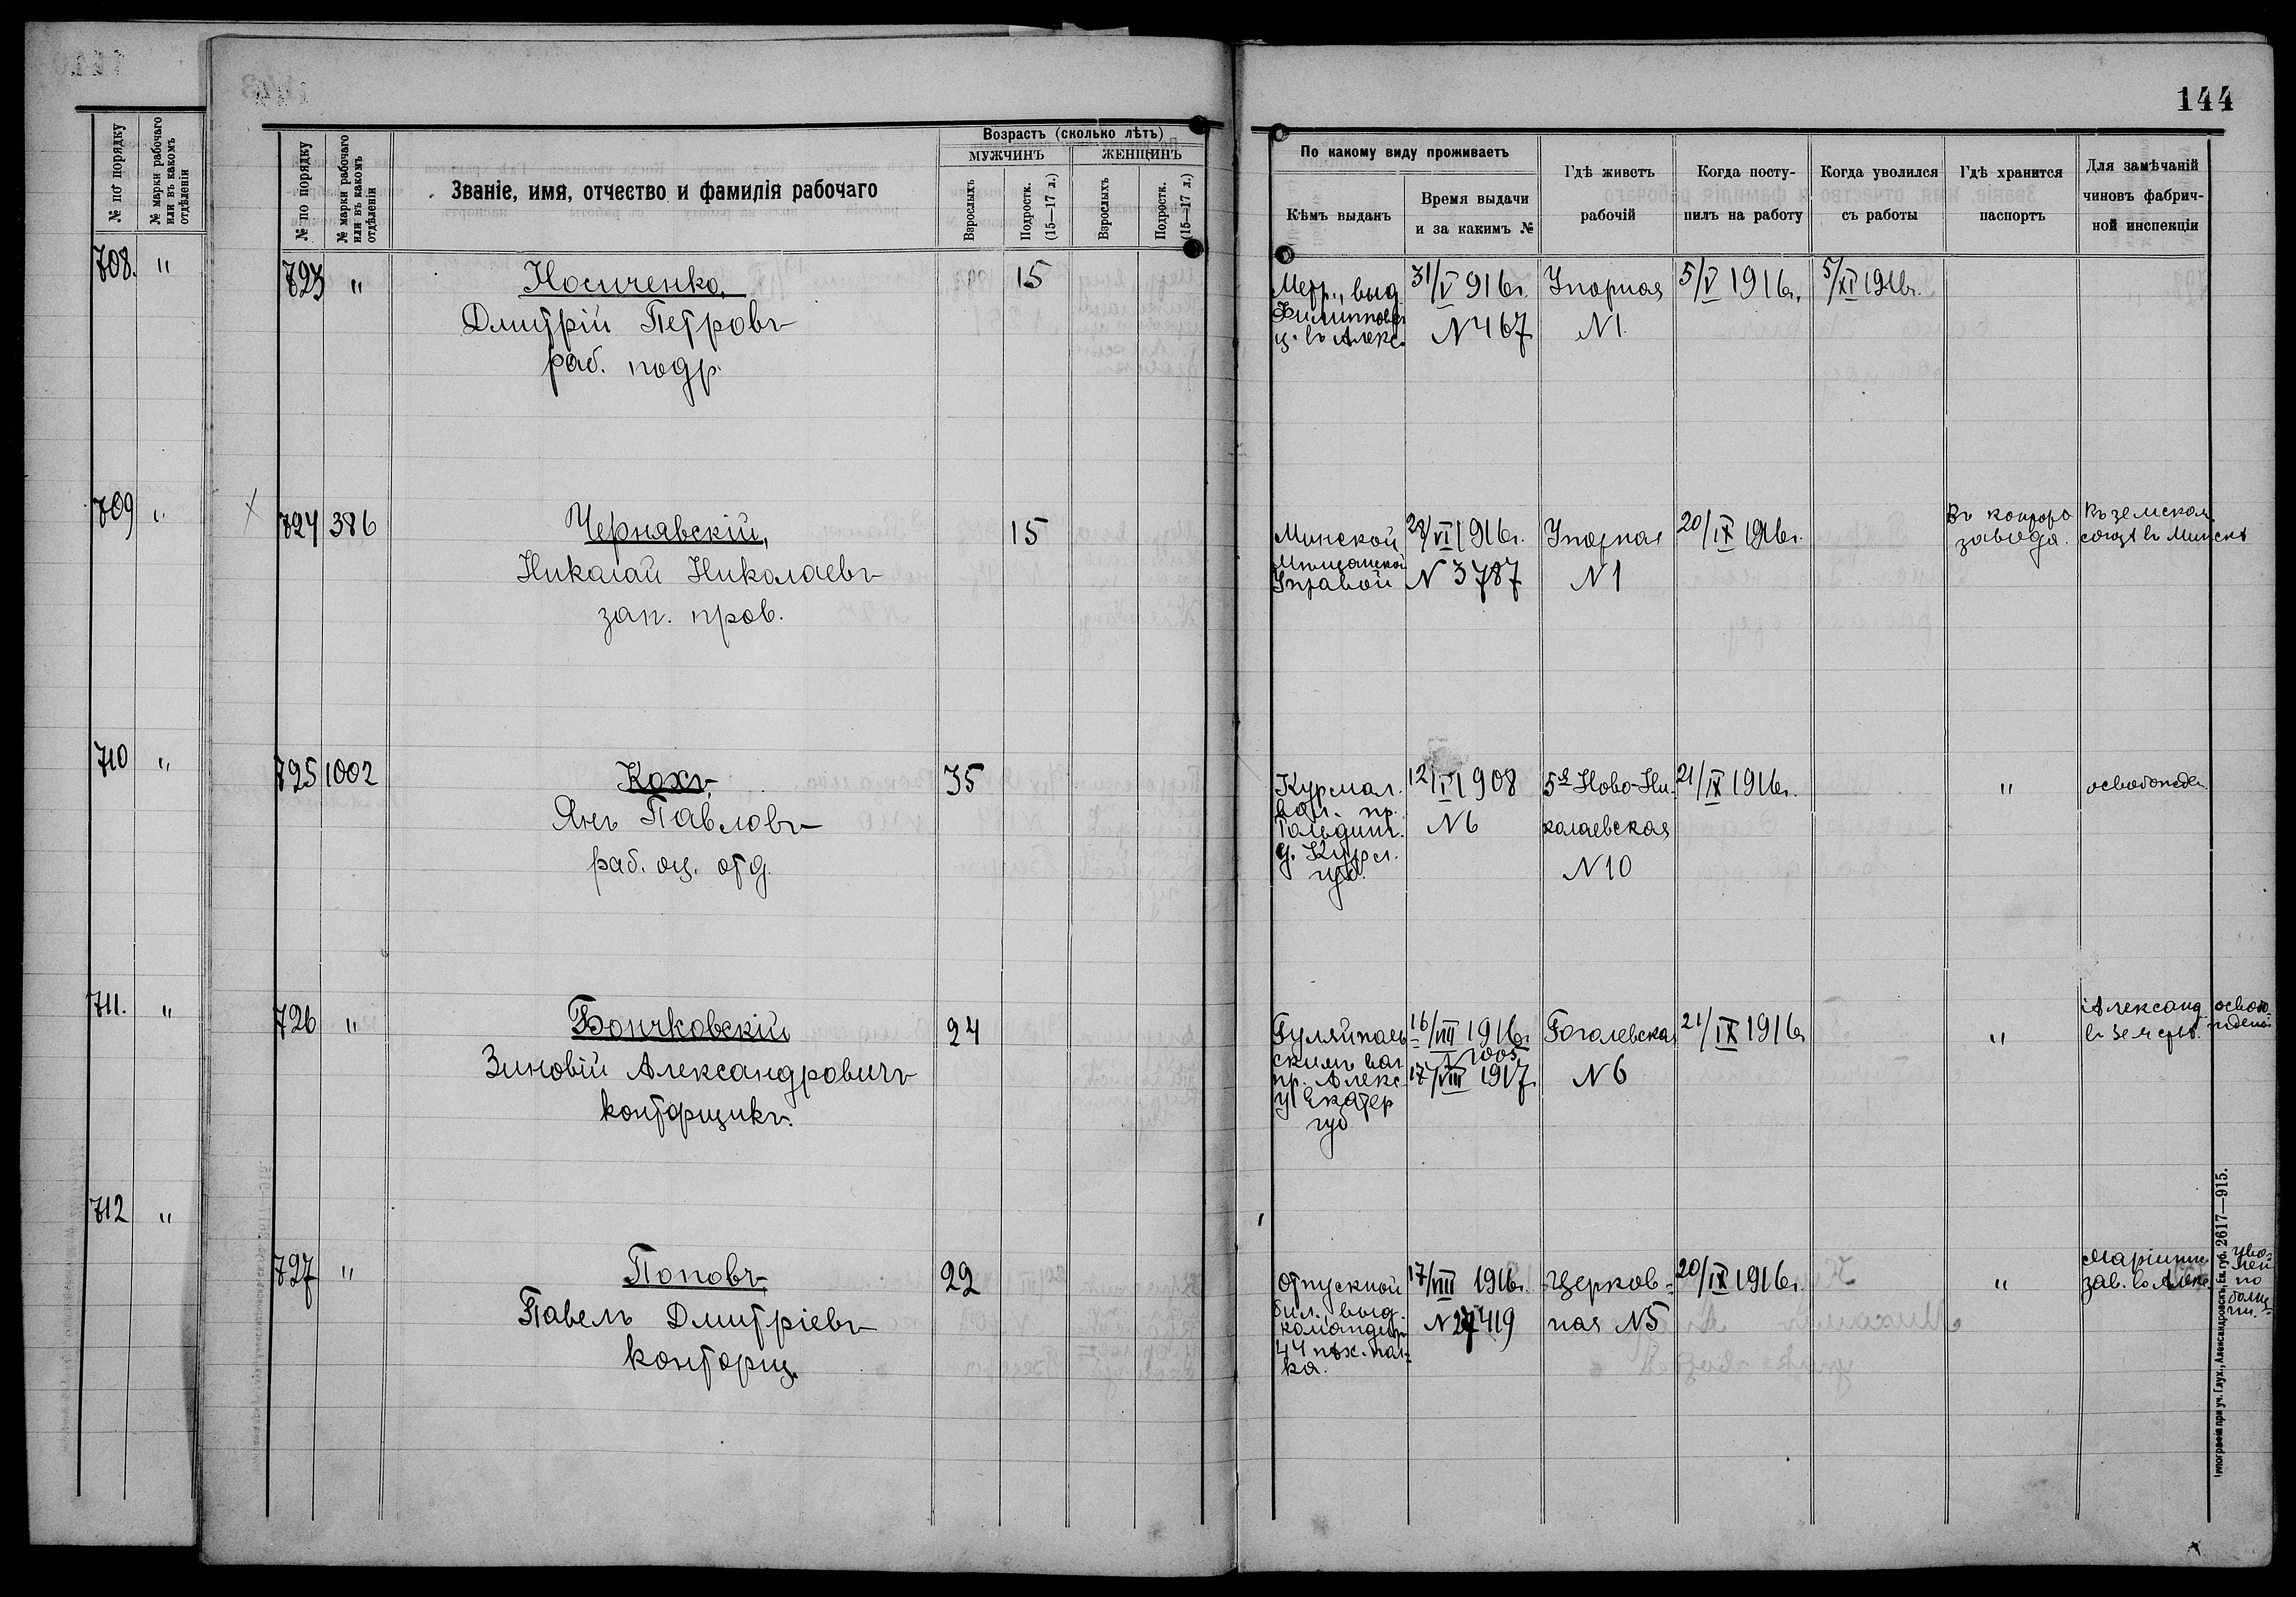 144
№ по порядку
№ марки рабочаго или въ какомъ отдѣленіи
708. "
709 "
710 "
711. "
712 "
№ по порядку
№ марки рабочаго или въ какомъ отдѣленіи
Званіе, имя, отчество и фамилія рабочаго
Возрастъ (сколько лѣтъ)
МУЖЧИНЪ
ЖЕНЩИНЪ
Взрослыхъ
Подростк. (15—17 л.)
Взрослыхъ
Подростк. (15—17 л.)
По какому виду проживаетъ
Кѣмъ выданъ
Время выдачи
и за какимъ №
Гдѣ живетъ
рабочій
Когда посту-
пилъ на работу
Когда уволился
съ работы
Гдѣ хранится
паспортъ
Для замѣчаній
чиновъ фабрич-
ной инспекціи
723 "
Носиченко,
Дмитрій Петровъ
раб. подр.
15
Метр., выд.
ц. въ Алекс.
31/V 916г.
N 467
Упорная
N1
5/V 1916г.
5/XI 1916г.
724 386
Чернявскій,
Николай Николаевъ
зап. пров.
15
Минской
Мѣщанской
Управой
28/VI 1916г.
N 3787
Упорная
N1
20/IX 1916г.
Въ конторѣ
завода.
Въ земском
союзѣ въ Минскѣ
725 1002
Кохъ,
Янъ Павловъ
раб. оц. отд.
35
Курмал.
вол. пр.
Гольдинг.
у. Курл.
губ.
12/I 1908
N6
5я Ново-Ни-
колаевская
N10
21/IX 1916г.
"
освобожден
726 "
Бончковскій
Зиновій Александровичъ
конторщикъ.
24
Гуляйполь
скимъ вол
пр. Алекс
у. Екатер
губ
16/VIII 1916г.
N 1005
17/VIII 1917.
Гоголевская
N6
21/IX 1916г
"
Александ.
въ земств.
освобо-
жденъ
727 "
Поповъ,
Павелъ Дмитріевъ
конторщ.
22
Отпускной
бил., выд.
командир
44 пѣх. пол-
ка.
17/VIII 1916г.
N 27419
Церков-
ная N5
20/IX 1916г.
"
зав. въ Алекс.
уво-
лен
по
болѣз-
ни.
Типографія при уч. Глух., Александровскъ, Ек. губ. 2617—915.